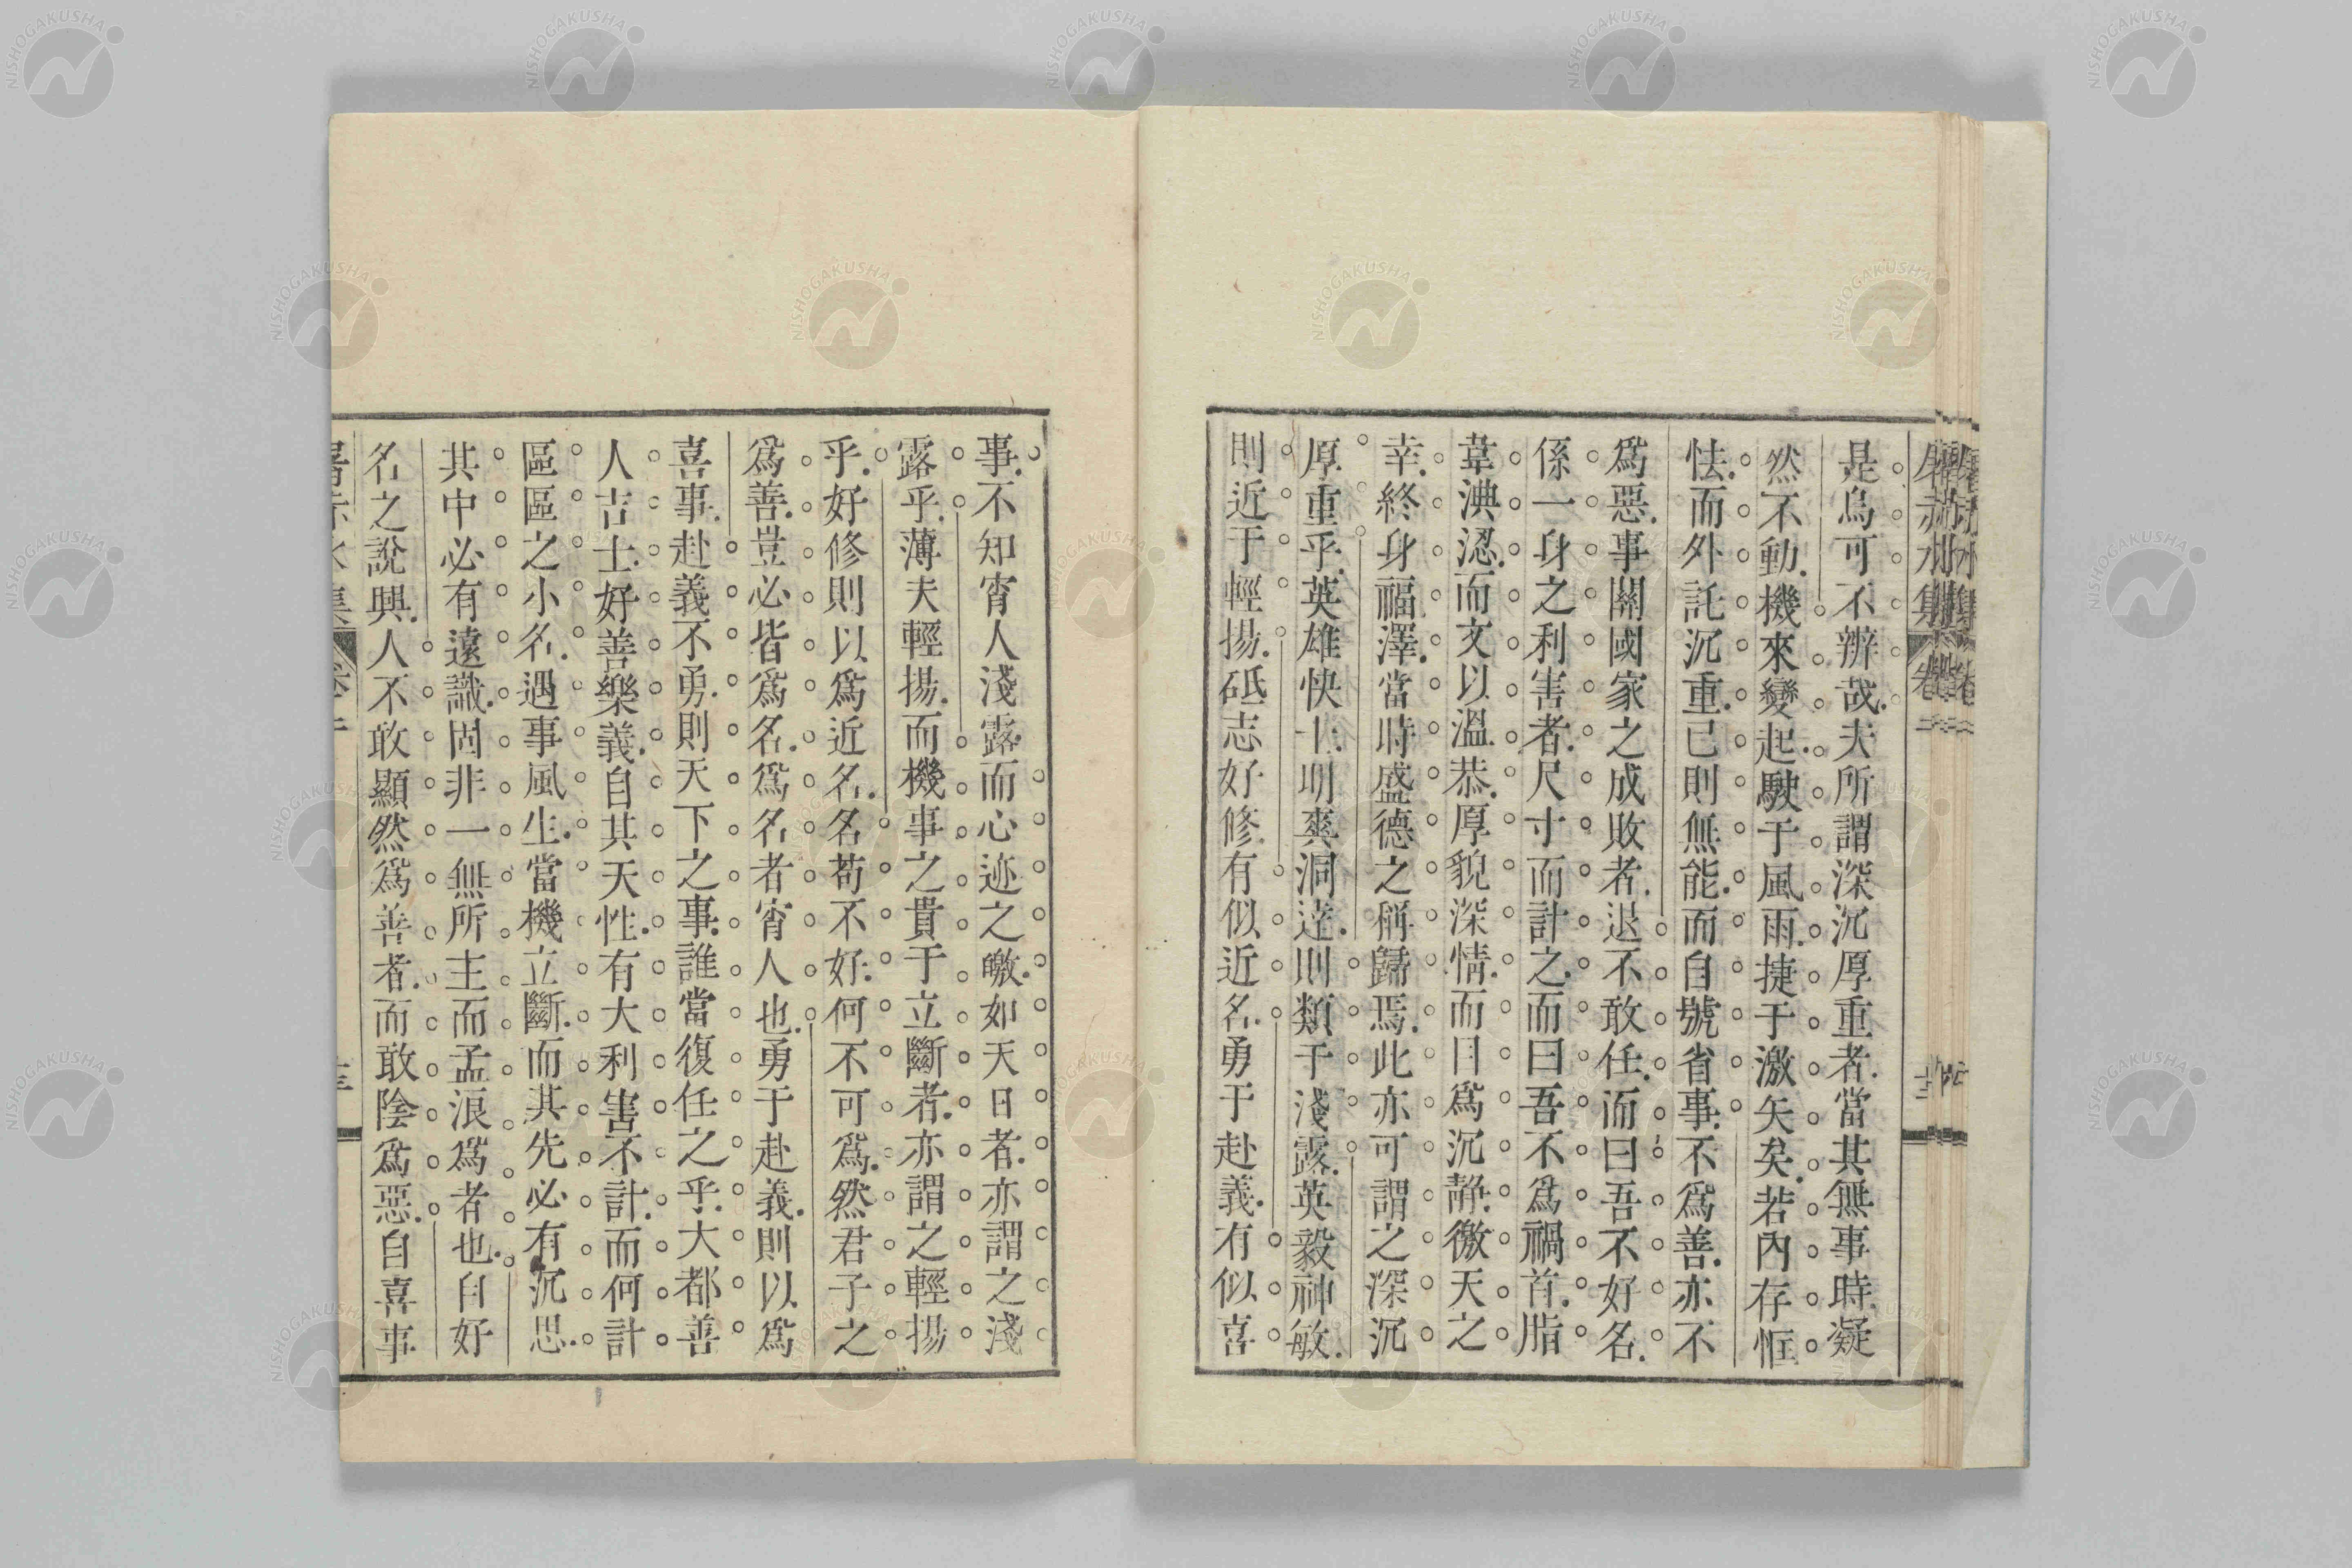 是烏可不辨哉夫所謂深沉厚重者當其無事時凝
然不動機來變起駛于風雨捷于激矢矣若內存恇
怯而外託沉重已則無能而自號省事不爲善亦不
爲惡事關國家之成敗者退不敢任而曰吾不好名
係一身之利害者尺寸而計之而曰吾不爲禍首脂
韋淟涊而文以溫恭厚貌深情而目爲沉靜徼天之
幸終身福澤當時盛德之稱歸焉此亦可謂之深沉
厚重乎英雄快士明爽洞達則類于淺露英毅神敏
則近于輕揚砥志好修有似近名勇于赴義有似喜
事不知宵人淺露而心迹之皦如天日者亦謂之淺
露乎薄夫輕揚而機事之貴于立斷者亦謂之輕揚
乎好修則以爲近名名苟不好何不可爲然君子之
爲善豈必皆爲名爲名者宵人也勇于赴義則以爲
喜事赴義不勇則天下之事誰當復任之乎大都善
人吉士好善樂義自其天性有大利害不計而何計
區區之小名遇事風生當機立斷而其先必有沉思
其中必有遠識固非一無所主而孟浪爲者也自好
名之說興人不敢顯然爲善者而敢陰爲惡自喜事